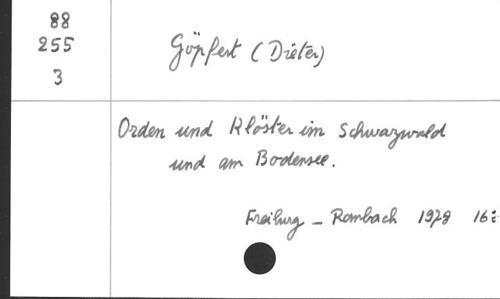 88
255
3
Göpfert (Dieter)
Orden und Klöster im Schwarzwald
und am Bodensee.
Freiburg _ Rombach 1978 16: